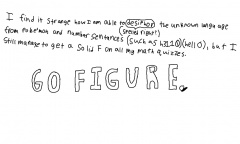 I find it strange how I am able to desipher the unknown language
(spelled right?)
from pokemon and number sentences (such as h3110)(hello), but I
Still manage to get a Solid F on all my math quizzes.
GO FIGURE.